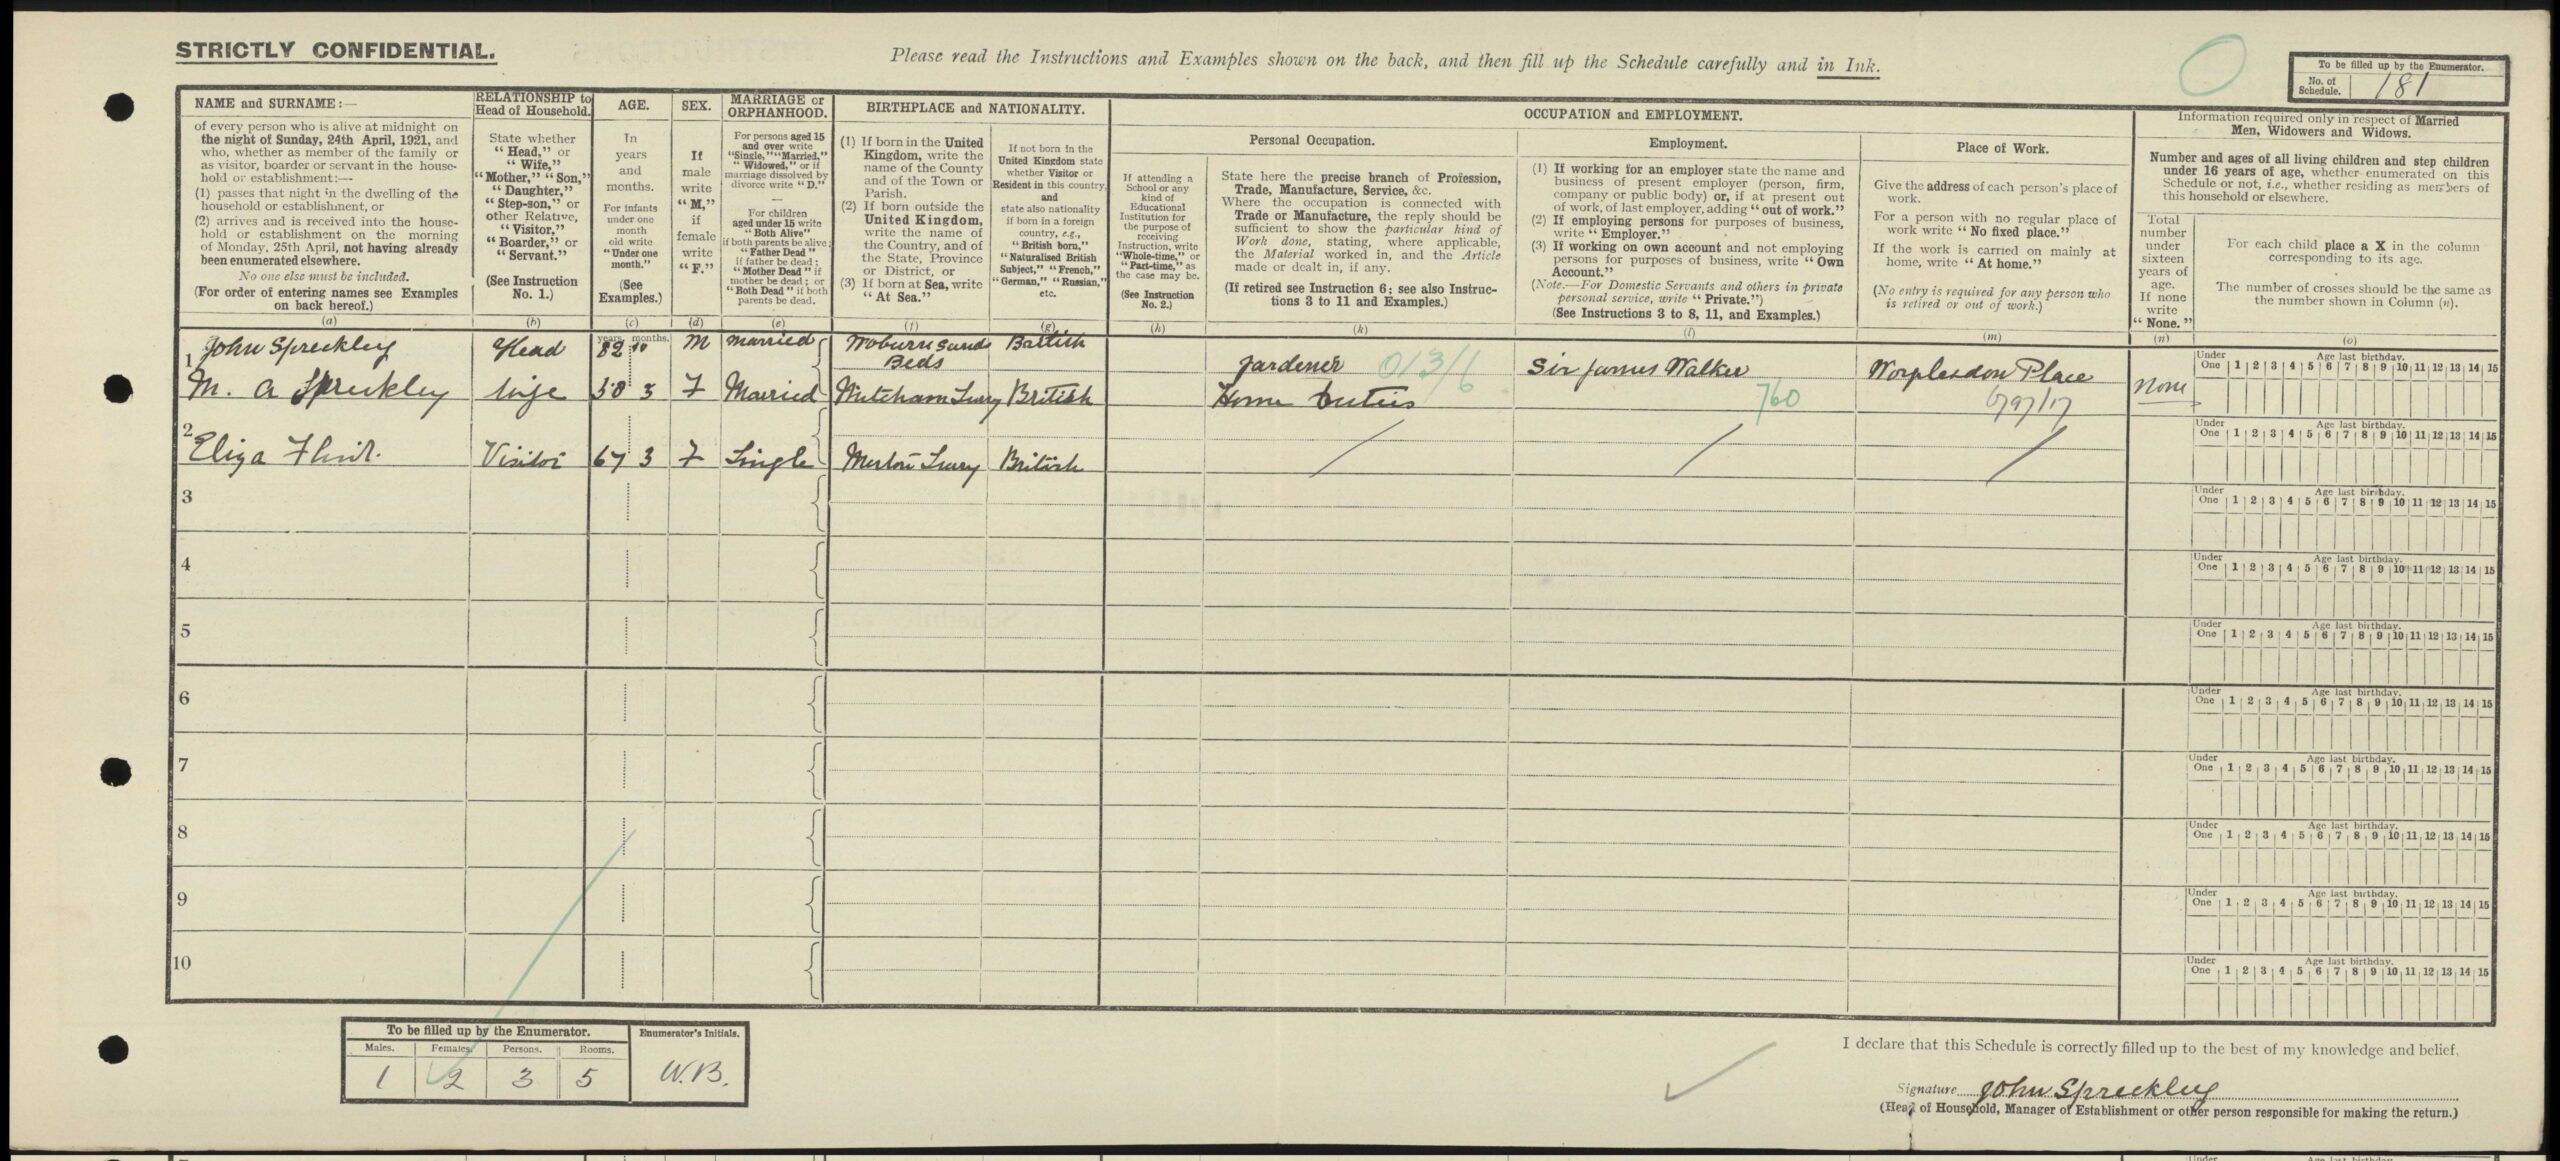 STRICTLY CONFIDENTIAL.
Please read the Instructions and Examples shown on the back, and then fill up the Schedule carefully and in Ink.
To be filled up by the Enumerator.
No. of Schedule. 181
NAME and SURNAME:—
of every person who is alive at midnight on
the night of Sunday, 24th April, 1921, and
who, whether as member of the family or
as visitor, boarder or servant in the house-
hold or establishment:—
(1) passes that night in the dwelling of the
household or establishment, or
(2) arrives and is received into the house-
hold or establishment on the morning
of Monday, 25th April, not having already
been enumerated elsewhere.
No one else must be included.
(For order of entering names see Examples
on back hereof.)
(a)
RELATIONSHIP to
Head of Household.
State whether
"Head," or
"Wife,"
"Mother," "Son,"
"Daughter,"
"Step-son," or
other Relative,
"Visitor,"
"Boarder," or
"Servant."
(See Instruction
No. 1.)
(b)
AGE.
In
years
and
months.
For infants
under one
month
old write
"Under one
month."
(See
Examples.)
(c)
SEX.
If
male
write
"M,"
if
female
write
"F."
(d)
MARRIAGE or
ORPHANHOOD.
For persons aged 15
and over write
"Single," "Married,"
"Widowed," or if
marriage dissolved by
divorce write "D."
—
For children
aged under 15 write
"Both Alive"
if both parents be alive;
"Father Dead"
if father be dead;
"Mother Dead" if
mother be dead; or
"Both Dead" if both
parents be dead.
(e)
BIRTHPLACE and NATIONALITY.
(1) If born in the United
Kingdom, write the
name of the County
and of the Town or
Parish.
(2) If born outside the
United Kingdom,
write the name of
the Country, and of
the State, Province
or District, or
(3) If born at Sea, write
"At Sea."
(f)
If not born in the
United Kingdom state
whether Visitor or
Resident in this country,
and
state also nationality
if born in a foreign
country, e.g.,
"British born,"
"Naturalised British
Subject," "French,"
"German," "Russian,"
etc.
(g)
OCCUPATION and EMPLOYMENT.
If attending a
School or any
kind of
Educational
Institution for
the purpose of
receiving
Instruction, write
"Whole-time," or
"Part-time," as
the case may be.
(See Instruction
No. 2.)
(h)
Personal Occupation.
State here the precise branch of Profession,
Trade, Manufacture, Service, &c.
Where the occupation is connected with
Trade or Manufacture, the reply should be
sufficient to show the particular kind of
Work done, stating, where applicable,
the Material worked in, and the Article
made or dealt in, if any.
(If retired see Instruction 6; see also Instruc-
tions 3 to 11 and Examples.)
(k)
Employment.
(1) If working for an employer state the name and
business of present employer (person, firm,
company or public body) or, if at present out
of work, of last employer, adding "out of work."
(2) If employing persons for purposes of business,
write "Employer."
(3) If working on own account and not employing
persons for purposes of business, write "Own
Account."
(Note.—For Domestic Servants and others in private
personal service, write "Private.")
(See Instructions 3 to 8, 11, and Examples.)
(l)
Place of Work.
Give the address of each person's place of
work.
For a person with no regular place of
work write "No fixed place."
If the work is carried on mainly at
home, write "At home."
(No entry is required for any person who
is retired or out of work.)
(m)
Information required only in respect of Married
Men, Widowers and Widows.
Number and ages of all living children and step children
under 16 years of age, whether enumerated on this
Schedule or not, i.e., whether residing as members of
this household or elsewhere.
Total
number
under
sixteen
years of
age.
If none
write
"None."
(n)
For each child place a X in the column
corresponding to its age.
The number of crosses should be the same as
the number shown in Column (n).
(o)
years. months.
1 John Spreckley Head 82 M Married Woburn Sand Beds British Gardener 013/6 Sir James Walker 760 Worplesdon Place None
M. A Spreckley Wife 58 3 F Married Mitcham Surry British Home Duties
2 Eliza Flint. Visitor 67 3 F Single Merton Surry British
3
4
5
6
7
8
9
10
Under One Age last birthday. 1 2 3 4 5 6 7 8 9 10 11 12 13 14 15
Under One Age last birthday. 1 2 3 4 5 6 7 8 9 10 11 12 13 14 15
Under One Age last birthday. 1 2 3 4 5 6 7 8 9 10 11 12 13 14 15
Under One Age last birthday. 1 2 3 4 5 6 7 8 9 10 11 12 13 14 15
Under One Age last birthday. 1 2 3 4 5 6 7 8 9 10 11 12 13 14 15
Under One Age last birthday. 1 2 3 4 5 6 7 8 9 10 11 12 13 14 15
Under One Age last birthday. 1 2 3 4 5 6 7 8 9 10 11 12 13 14 15
Under One Age last birthday. 1 2 3 4 5 6 7 8 9 10 11 12 13 14 15
Under One Age last birthday. 1 2 3 4 5 6 7 8 9 10 11 12 13 14 15
Under One Age last birthday. 1 2 3 4 5 6 7 8 9 10 11 12 13 14 15
To be filled up by the Enumerator.
Males. Females. Persons. Rooms.
1 2 3 5
Enumerator's Initials.
W.B.
I declare that this Schedule is correctly filled up to the best of my knowledge and belief.
Signature John Spreckley
(Head of Household, Manager of Establishment or other person responsible for making the return.)